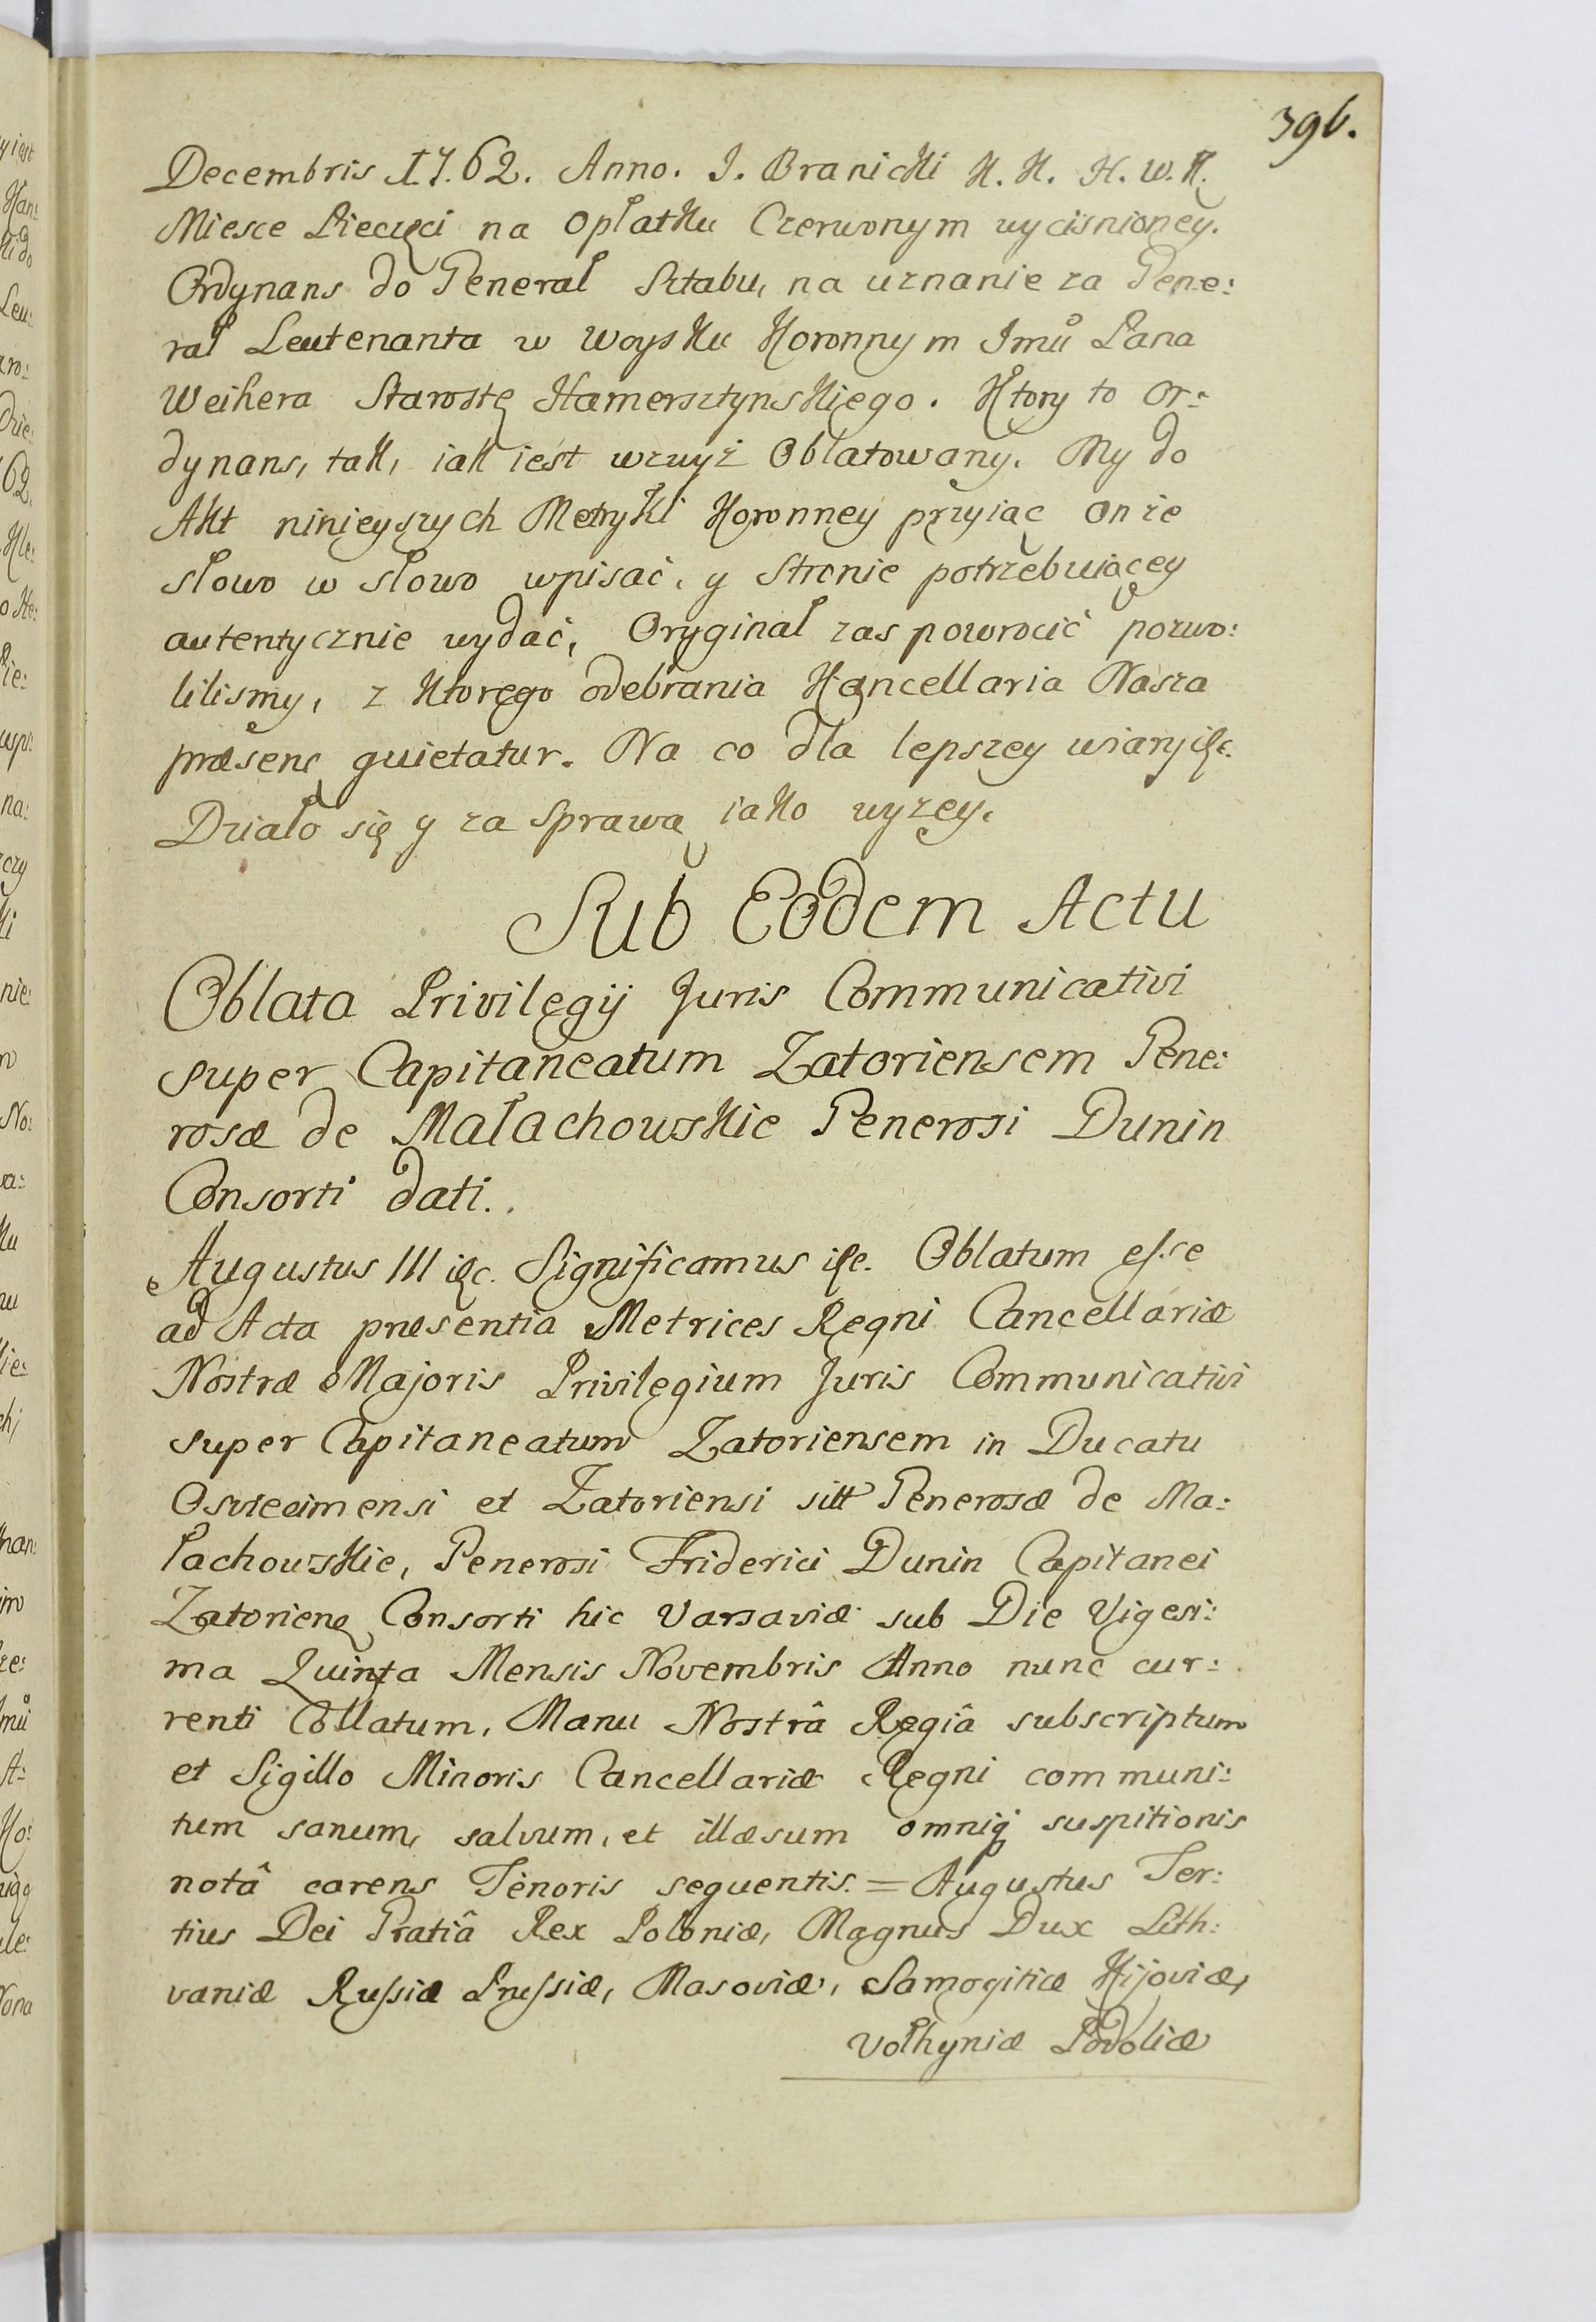 396.
Decembris 1762. Anno. J. Branicki K. K. H. W. K.
Miesce Pieczęci na Opłatku Czerwonym wycisnioney.
Ordynans do Generał Sztabu, na uznanie za Gene:
rał Leutenanta w Woysku Koronnym Jmu Pana
Weihera Starostę Hamersztynskiego. Ktory to Or:
dynans, tak, iak iest wzwyż Oblatowany. My do
Akt ninieyszych Metryki Koronney przyiąc onże
słowo w słowo wpisać, y Stronie potrzebuiącey
autentycznie wydać, Oryginał zas powrocić pozwo:
lilismy, z ktorego odebrania Kancellaria Nasza
præsenc quietatur. Na co dla lepszey wiary &c.
Działo się y za Sprawą iako wyzey.
Sub Eodem Actu
Oblata Privilegij Juris Communicativi
super Capitaneatum Zatoriensem Gene:
rosæ de Małachowskie Generosi Dunin
Consorti dati..
Augustus III &c. Significamus &c. Oblatum esse
ad Acta præsentia Metrices Regni Cancellariæ
Nostræ Majoris Privilegium Juris Communicativi
super Capitaneatum Zatoriensem in Ducatu
Osviecimensi et Zatoriensi sitt Generosæ de Ma:
łachowskie, Generosi Friderici Dunin Capitanei
Zatorien Consorti hic Varsaviæ sub Die Vigesi:
ma Quinta Mensis Novembris Anno nunc cur:
renti Collatum, Manu Nostrâ Regiâ subscriptum
et Sigillo Minoris Cancellariæ Regni communi:
tum sanum, salvum, et illæsum omniq suspitionis
notâ carens Tenoris sequentis. = Augustus Ter:
tius Dei Gratiâ Rex Poloniæ, Magnus Dux Lith:
vaniæ Russiæ Prussiæ, Masoviæ, Samogitiæ Kijoviæ,
Volhyniæ Podoliæ